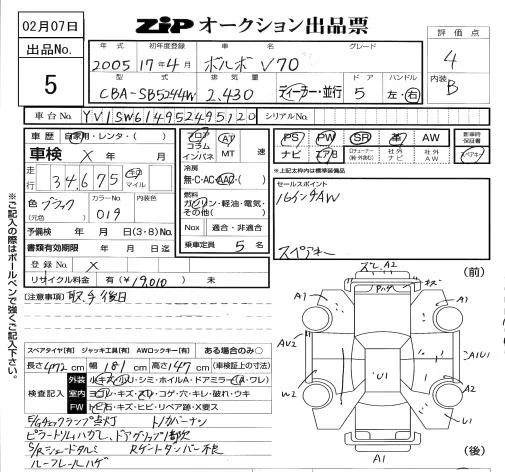 02月07日
ZIP オークション出品票
評価点
出品No.
5
年式 初年度登録 車名 グレード
2005 17年4月 ボルボ V70
4
型式 排気量 ドア ハンドル
CBA-SB5244W 2,430 ディーラー・並行 5 左・右
内装
B
車台No. YV1SW614952495120 シリアルNo.
車歴 自家用・レンタ・( )
車検 X 年 月
走行 34,675 キロ マイル
色 ブラック (元色) カラーNo. 019 内装色
予備検 年 月 日(3・8)No.
書類有効期限 年 月 日迄
登録No. X
リサイクル料金 有(¥19,010) 無
フロア コラム インパネ
AT MT 速
冷房
無・C・AC・AAC・( )
燃料
ガソリン・軽油・電気・その他( )
Nox 適合・非適合
乗車定員 5 名
PS PW SR 革 AW
ナビ エアB 社外ナビ 社外AW
新車時保証書
スペアキー
※上記太枠内は標準装備品
セールスポイント
16インチAW
スペアキー
※ご記入の際はボールペンで強くご記入下さい。
(注意事項) 取、手後日
スペアタイヤ[有] ジャッキ工具[有] AWロックキー[有] ある場合のみ○
長さ472cm 幅181cm 高さ147cm (車検証上の寸法)
検査記入
外装
室内
下
ヨゴレ・キズ・スレ・コゲ・穴・キレ・破れ・ウキ
トビ石・キズ・ヒビ・リペア跡・X要ス
E/Gチェックランプ点灯 トノカバーナシ
ルーフレールハゲ
(前)
ズレ A2
キズ
A1
A1
AU2
A1U1
U1
W2
A2
A1
(後)